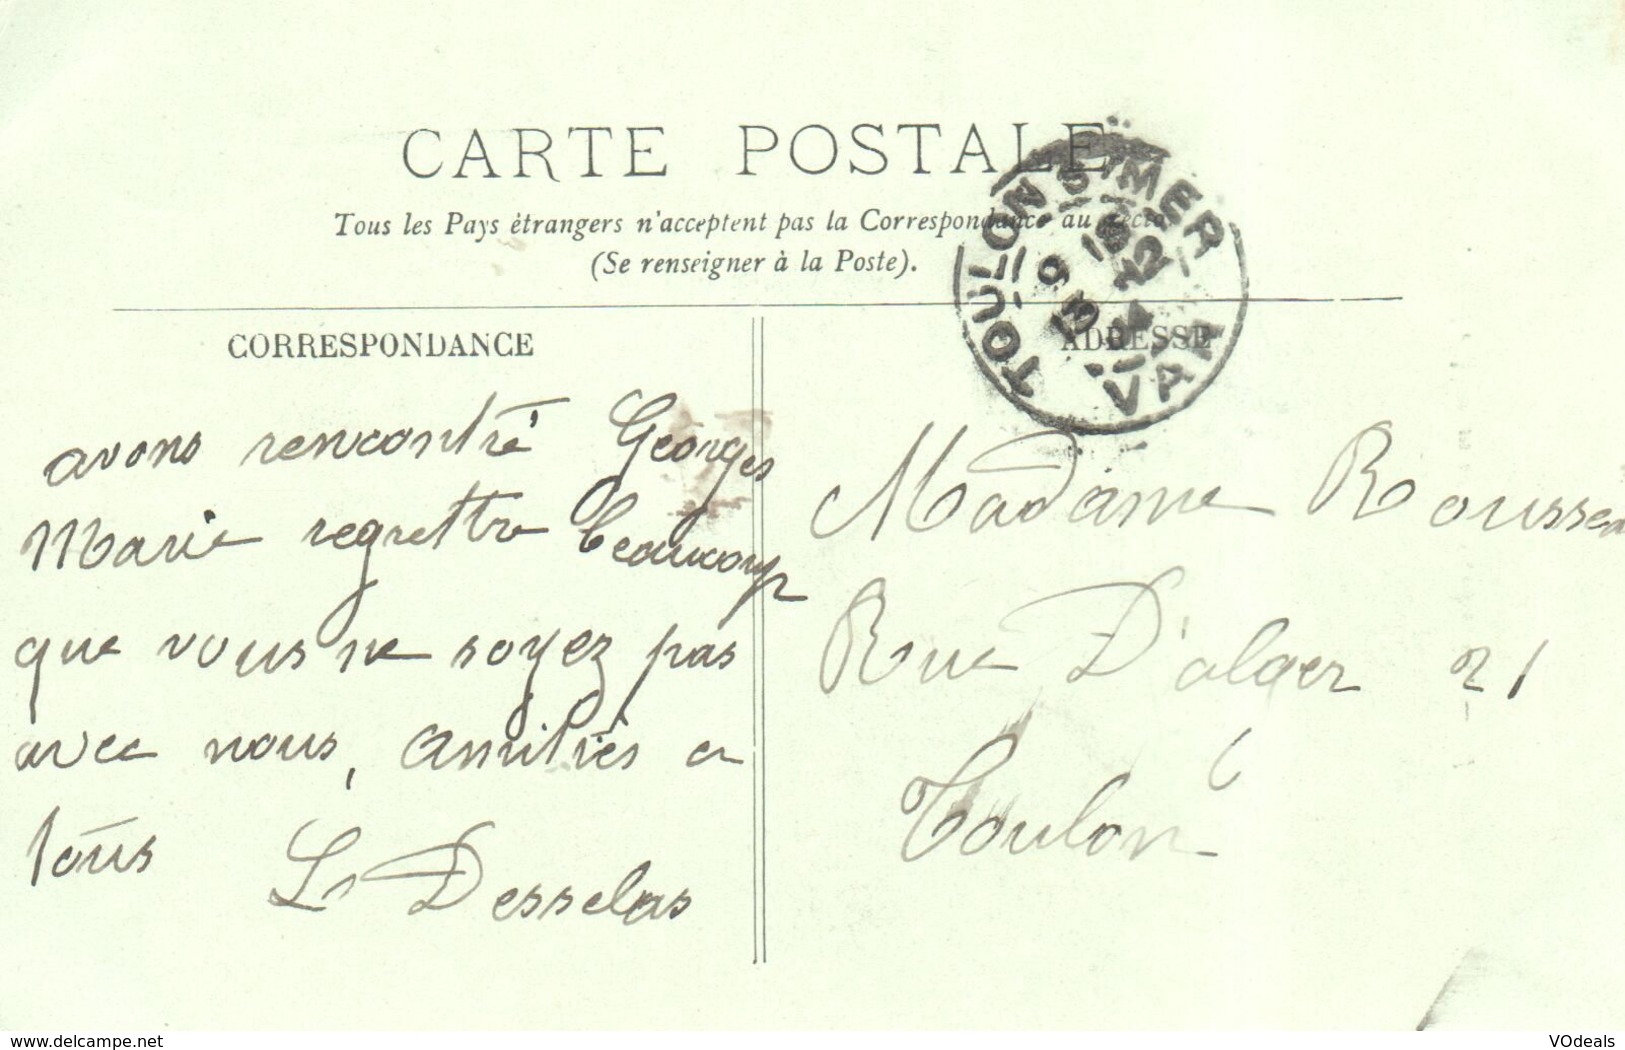 CARTE POSTALE
Tous les Pays étrangers n'acceptent pas la Correspondance au recto
(Se renseigner à la Poste).
CORRESPONDANCE
avons rencontré Georges
Marie regrettre beaucoup
que vous ne soyez pas
avec nous, amitiès a
tous
L Desselas
TOULON S MER
VAR
ADRESSE
Madame Roussea
Rue D'alger 21
Toulon
delcampe.net
VOdeals